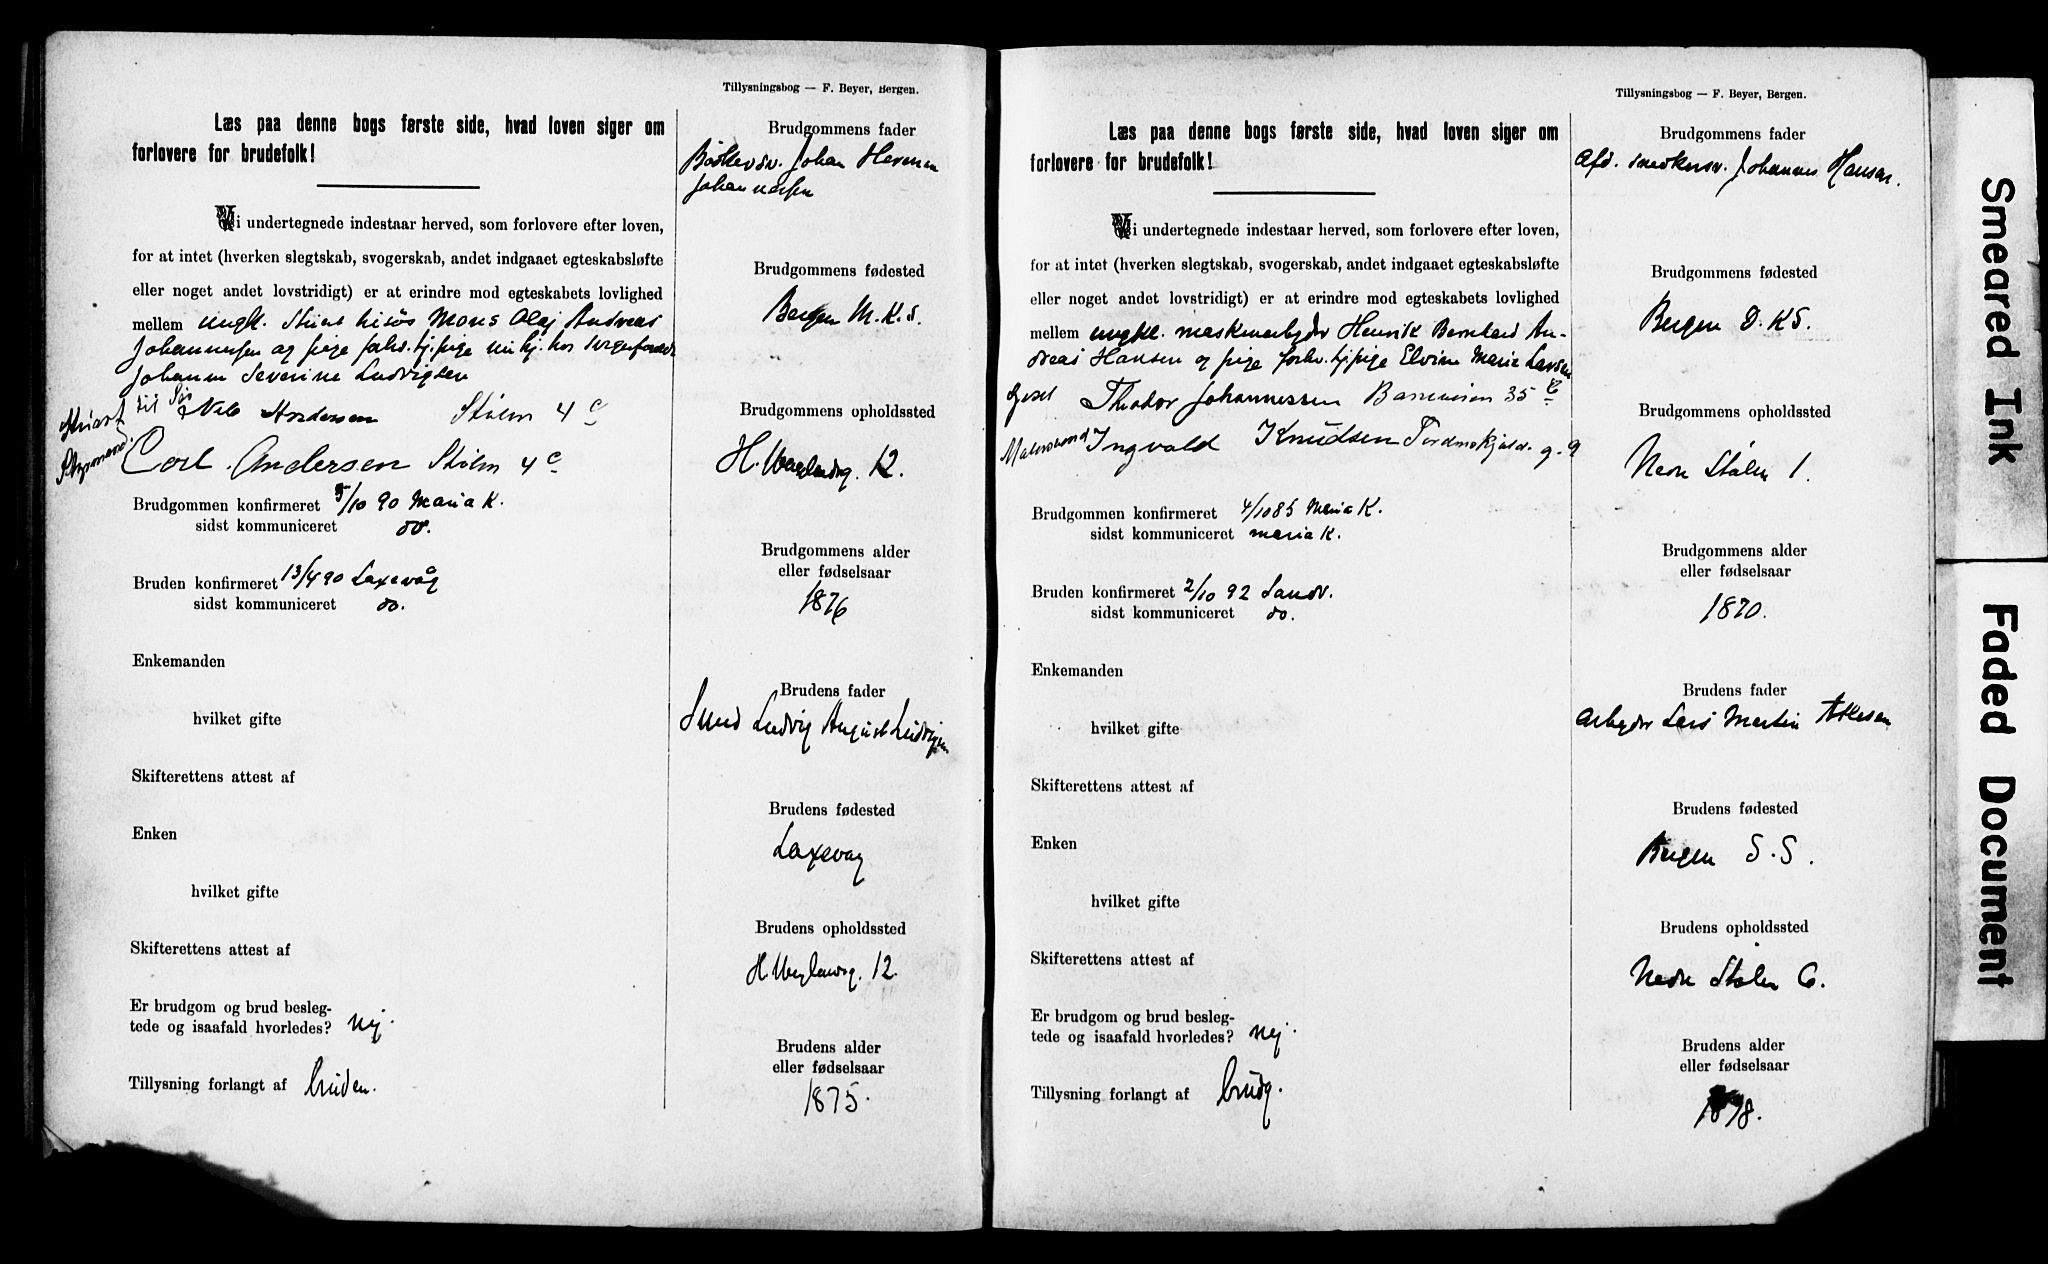 Tillysningsbog — F. Beyer, Bergen.
Læs paa denne bogs første side, hvad loven siger om
forlovere for brudefolk!
Vi undertegnede indestaar herved, som forlovere efter loven,
for at intet (hverken slegtskab, svogerskab, andet indgaaet egteskabsløfte
eller noget andet lovstridigt) er at erindre mod egteskabets lovlighed
mellem ungk. Stuert tilsøs Mons Olaj Andreas
Johannessen og pige forhv. tj.pige nu hj. hos svigerforældre
Johanne Severine Ludvigsen
Stuart til Sjøs Nils Andersen Stølen 4 c
Styrmand. Carl Andersen Stølen 4 c
Brudgommen konfirmeret 5/10 90 Maria K.
sidst kommuniceret do.
Bruden konfirmeret 13/4 90 Laxevåg
sidst kommuniceret do.
Enkemanden
hvilket gifte
Skifterettens attest af
Enken
hvilket gifte
Skifterettens attest af
Er brudgom og brud besleg-
tede og isaafald hvorledes? nej.
Tillysning forlangt af bruden.
Brudgommens fader
Bødkersv. Johan Herman
Johannessen
Brudgommens fødested
Bergen M. K. S.
Brudgommens opholdssted
H. Wergelandsg. 12.
Brudgommens alder
eller fødselsaar
1876
Brudens fader
Smed Ludvig August Ludvigsen
Brudens fødested
Laxevåg
Brudens opholdssted
H. Wergelandsg. 12.
Brudens alder
eller fødselsaar
1875.
Tillysningsbog — F. Beyer, Bergen.
Læs paa denne bogs første side, hvad loven siger om
forlovere for brudefolk!
Vi undertegnede indestaar herved, som forlovere efter loven,
for at intet (hverken slegtskab, svogerskab, andet indgaaet egteskabsløfte
eller noget andet lovstridigt) er at erindre mod egteskabets lovlighed
mellem ungkl. maskinarbejder Henrik Bernhard An-
dreas Hansen og pige forhv. tj.pige Elvine Marie Larsen
Theodor Johannessen 35
Ingvald Knudsen Tordenskjolds g. 9
Brudgommen konfirmeret 4/10 85 Maria K.
sidst kommuniceret Maria K.
Bruden konfirmeret 2/10 92 Sandv.
sidst kommuniceret do.
Enkemanden
hvilket gifte
Skifterettens attest af
Enken
hvilket gifte
Skifterettens attest af
Er brudgom og brud besleg-
tede og isaafald hvorledes? nej.
Tillysning forlangt af brudg.
Brudgommens fader
Afd. snedkersv. Johannes Hansen.
Brudgommens fødested
Bergen D. K S.
Brudgommens opholdssted
Nedre Stølen 1.
Brudgommens alder
eller fødselsaar
1870.
Brudens fader
Arbejder Lars Martin Atlesen
Brudens fødested
Bergen S. S.
Brudens opholdssted
Nedre Stølen 6.
Brudens alder
eller fødselsaar
1878.
Smeared Ink
Faded Document